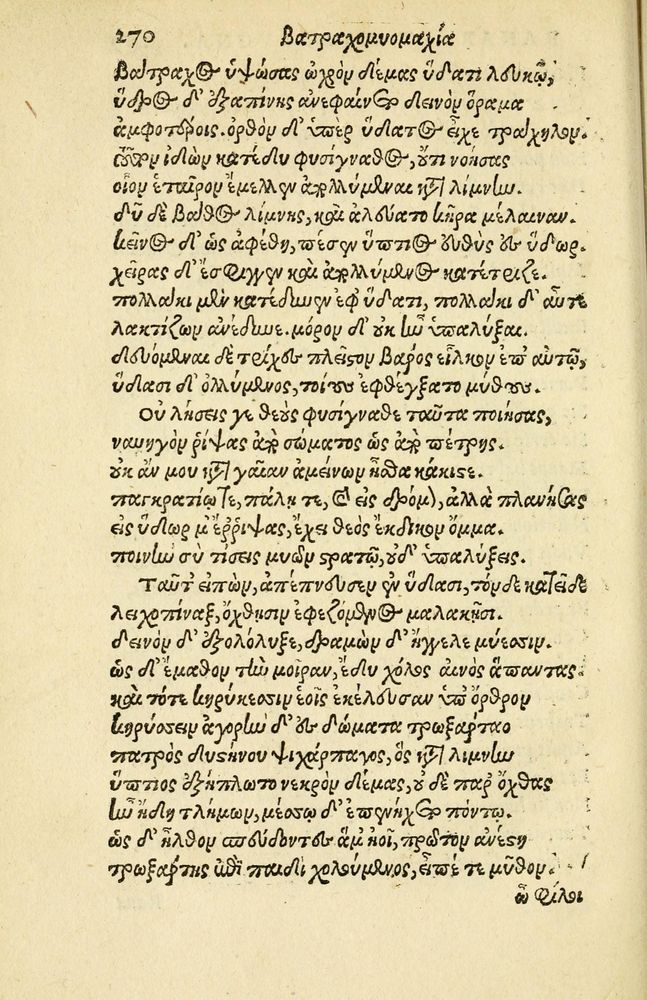 270 Βατραχομυομαχία
βάτραχος ὑψώσας ὠχρὸν δέμας ὕδατι λευκῷ,
ὕδρος δ' ἐξαπίνης ἀνεφαίνετο δεινὸν ὅραμα
ἀμφοτέροις. ὀρθὸν δ' ὑπὲρ ὕδατος εἶχε τράχηλον.
τοῦτον ἰδὼν κατέδυ φυσίγναθος, οὔτι νοήσας
οἷον ἑταῖρον ἔμελλεν ἀπολλύμεναι κατὰ λίμνην.
δῦ δὲ βάθος λίμνης, καὶ ἀλεύατο κῆρα μέλαιναν.
κεῖνος δ' ὡς ἀφέθη, πέσεν ὕπτιος εὐθὺς ἐς ὕδωρ.
χεῖρας δ' ἔσφιγγεν καὶ ἀπολλύμενος κατέτριζε.
πολλάκι μὲν κατέδυνεν ἐφ' ὕδατι, πολλάκι δ' αὖτε
λακτίζων ἀνέδυνε. μόρον δ' οὐκ ἦν ὑπαλύξαι.
δευόμεναι δὲ τρίχες πλεῖστον βάρος εἷλκον ἐπ' αὐτῷ,
ὕδασι δ' ὀλλύμενος, τοίους ἐφθέγξατο μύθους.
Οὐ λήσεις γε θεοὺς φυσίγναθε ταῦτα ποιήσας,
ναυηγὸν ῥίψας ἀπὸ σώματος ὡς ἀπὸ πέτρης.
οὐκ ἄν μου κατὰ γαῖαν ἀμείνων ἦσθα κάκιστε.
παγκρατίῳ τε, πάλῃ τε, καὶ εἰς δρόμον, ἀλλὰ πλανήσας
εἰς ὕδωρ μ' ἔῤῥιψας, ἔχει θεὸς ἔκδικον ὄμμα.
ποινὴν σὺ τίσεις μυῶν στρατῷ, οὐδ' ὑπαλύξεις.
Ταῦτ' εἰπὼν, ἀπέπνευσεν ἐν ὕδασι, τόν δε κατεῖδε
λειχοπίναξ, ὄχθῃσιν ἐφεζόμενος μαλακῇσι.
δεινὸν δ' ἐξολόλυξε, δραμὼν δ' ἤγγελε μύεσσιν.
ὡς δ' ἔμαθον τὴν μοῖραν, ἔδυ χόλος αἰνὸς ἅπαντας.
καὶ τότε κηρύκεσσιν ἑοῖς ἐκέλευσαν ὑπ' ὄρθρον
κηρύσσειν ἀγορὴν δ' ἐς δώματα τρωξάρταο
πατρὸς δυστήνου ψιχάρπαγος, ὃς κατὰ λίμνην
ὕπτιος ἐξήπλωτο νεκρὸν δέμας, οὐ δὲ παρ' ὄχθας
ἦν ἤδη τλήμων, μέσσῳ δ' ἐπενήχετο πόντῳ.
ὡς δ' ἦλθον σπεύδοντες ἅμ' ἠοῖ, πρῶτον ἀνέστη
τρωξάρτης ἐπὶ παιδὶ χολούμενος, εἶπέ τε μῦθον.
ὦ φίλοι